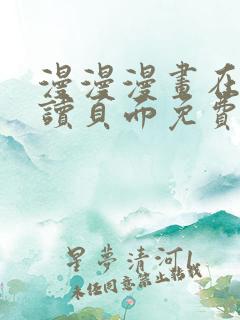 漫漫漫畫在
讀頁面免費
星夢清河l
未經同意禁止轉載